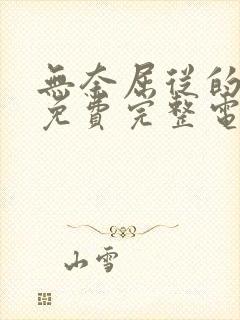 無奈屈從的
免費完整電
山雪